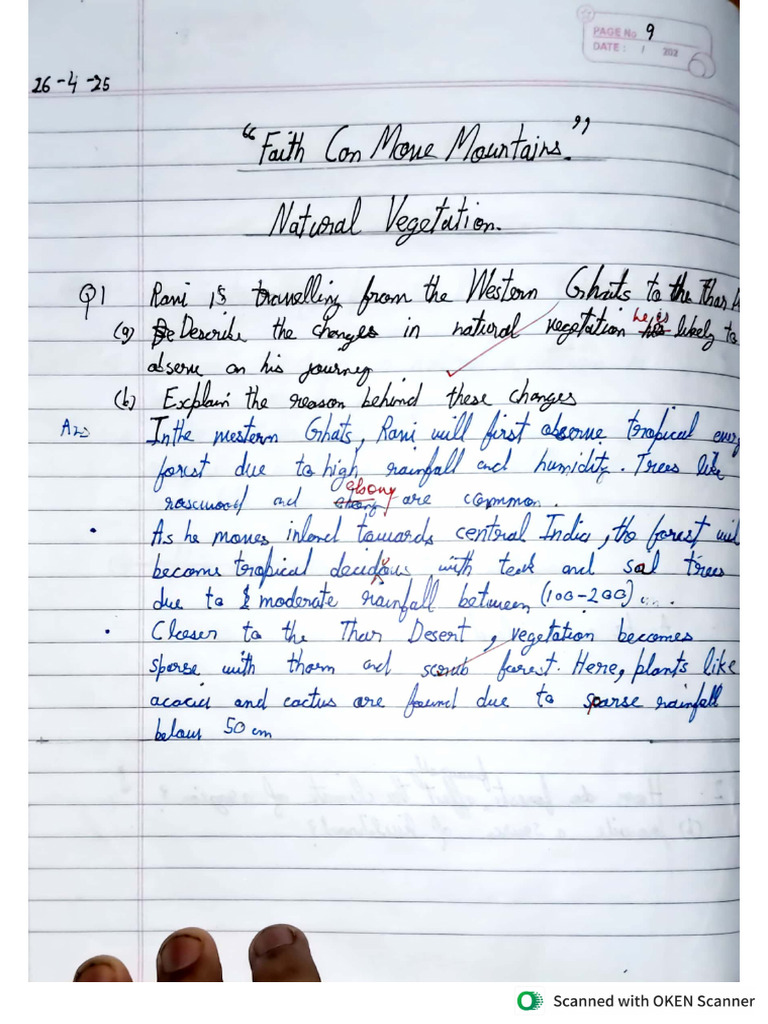 PAGE No 9
DATE: / 202
26-4-25
"Faith Can Move Mountains."
Natural Vegetation.
Q1 Rani is travelling from the Western Ghats to the Thar
(a) Describe the changes in natural vegetation he is likely to
observe on his journey
(b) Explain the reason behind these changes
Ans In the western Ghats, Rani will first observe tropical
forest due to high rainfall and humidity. Trees like
rosewood and ebony are common.
• As he moves inland towards central India, the forest will
become tropical deciduous with teak and sal trees
due to moderate rainfall between (100-200) cm.
• Closer to the Thar Desert, vegetation becomes
sparse with thorn and scrub forest. Here, plants like
acacia and cactus are found due to sparse rainfall
below 50 cm
Scanned with OKEN Scanner